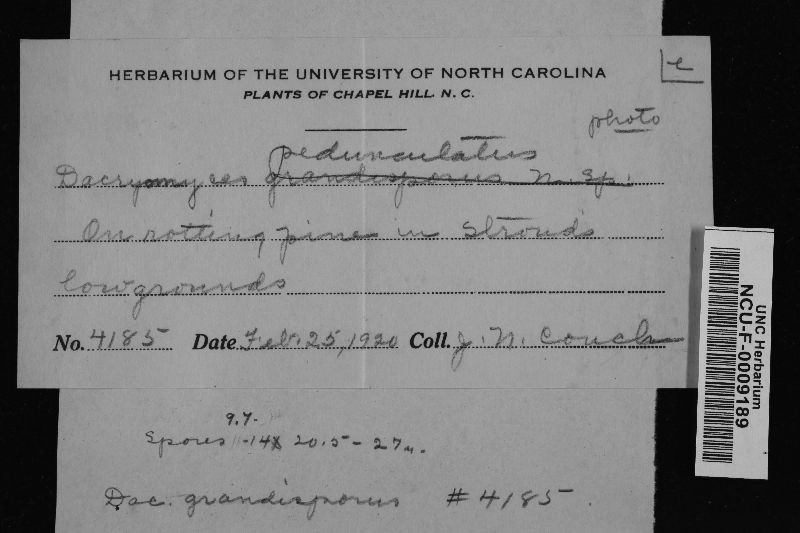 e
HERBARIUM OF THE UNIVERSITY OF NORTH CAROLINA
PLANTS OF CHAPEL HILL. N. C.
photo
pedunculatus
Dacryomyces grandisporus n. sp.
On rotting pine in Strowd's
lowgrounds
No. 4185 Date Feb. 25, 1920 Coll. J. N. Couch
UNC Herbarium
NCU-F-0009189
9.7-
Spores 11-14 x 20.5-27µ.
Dac. grandisporus #4185.